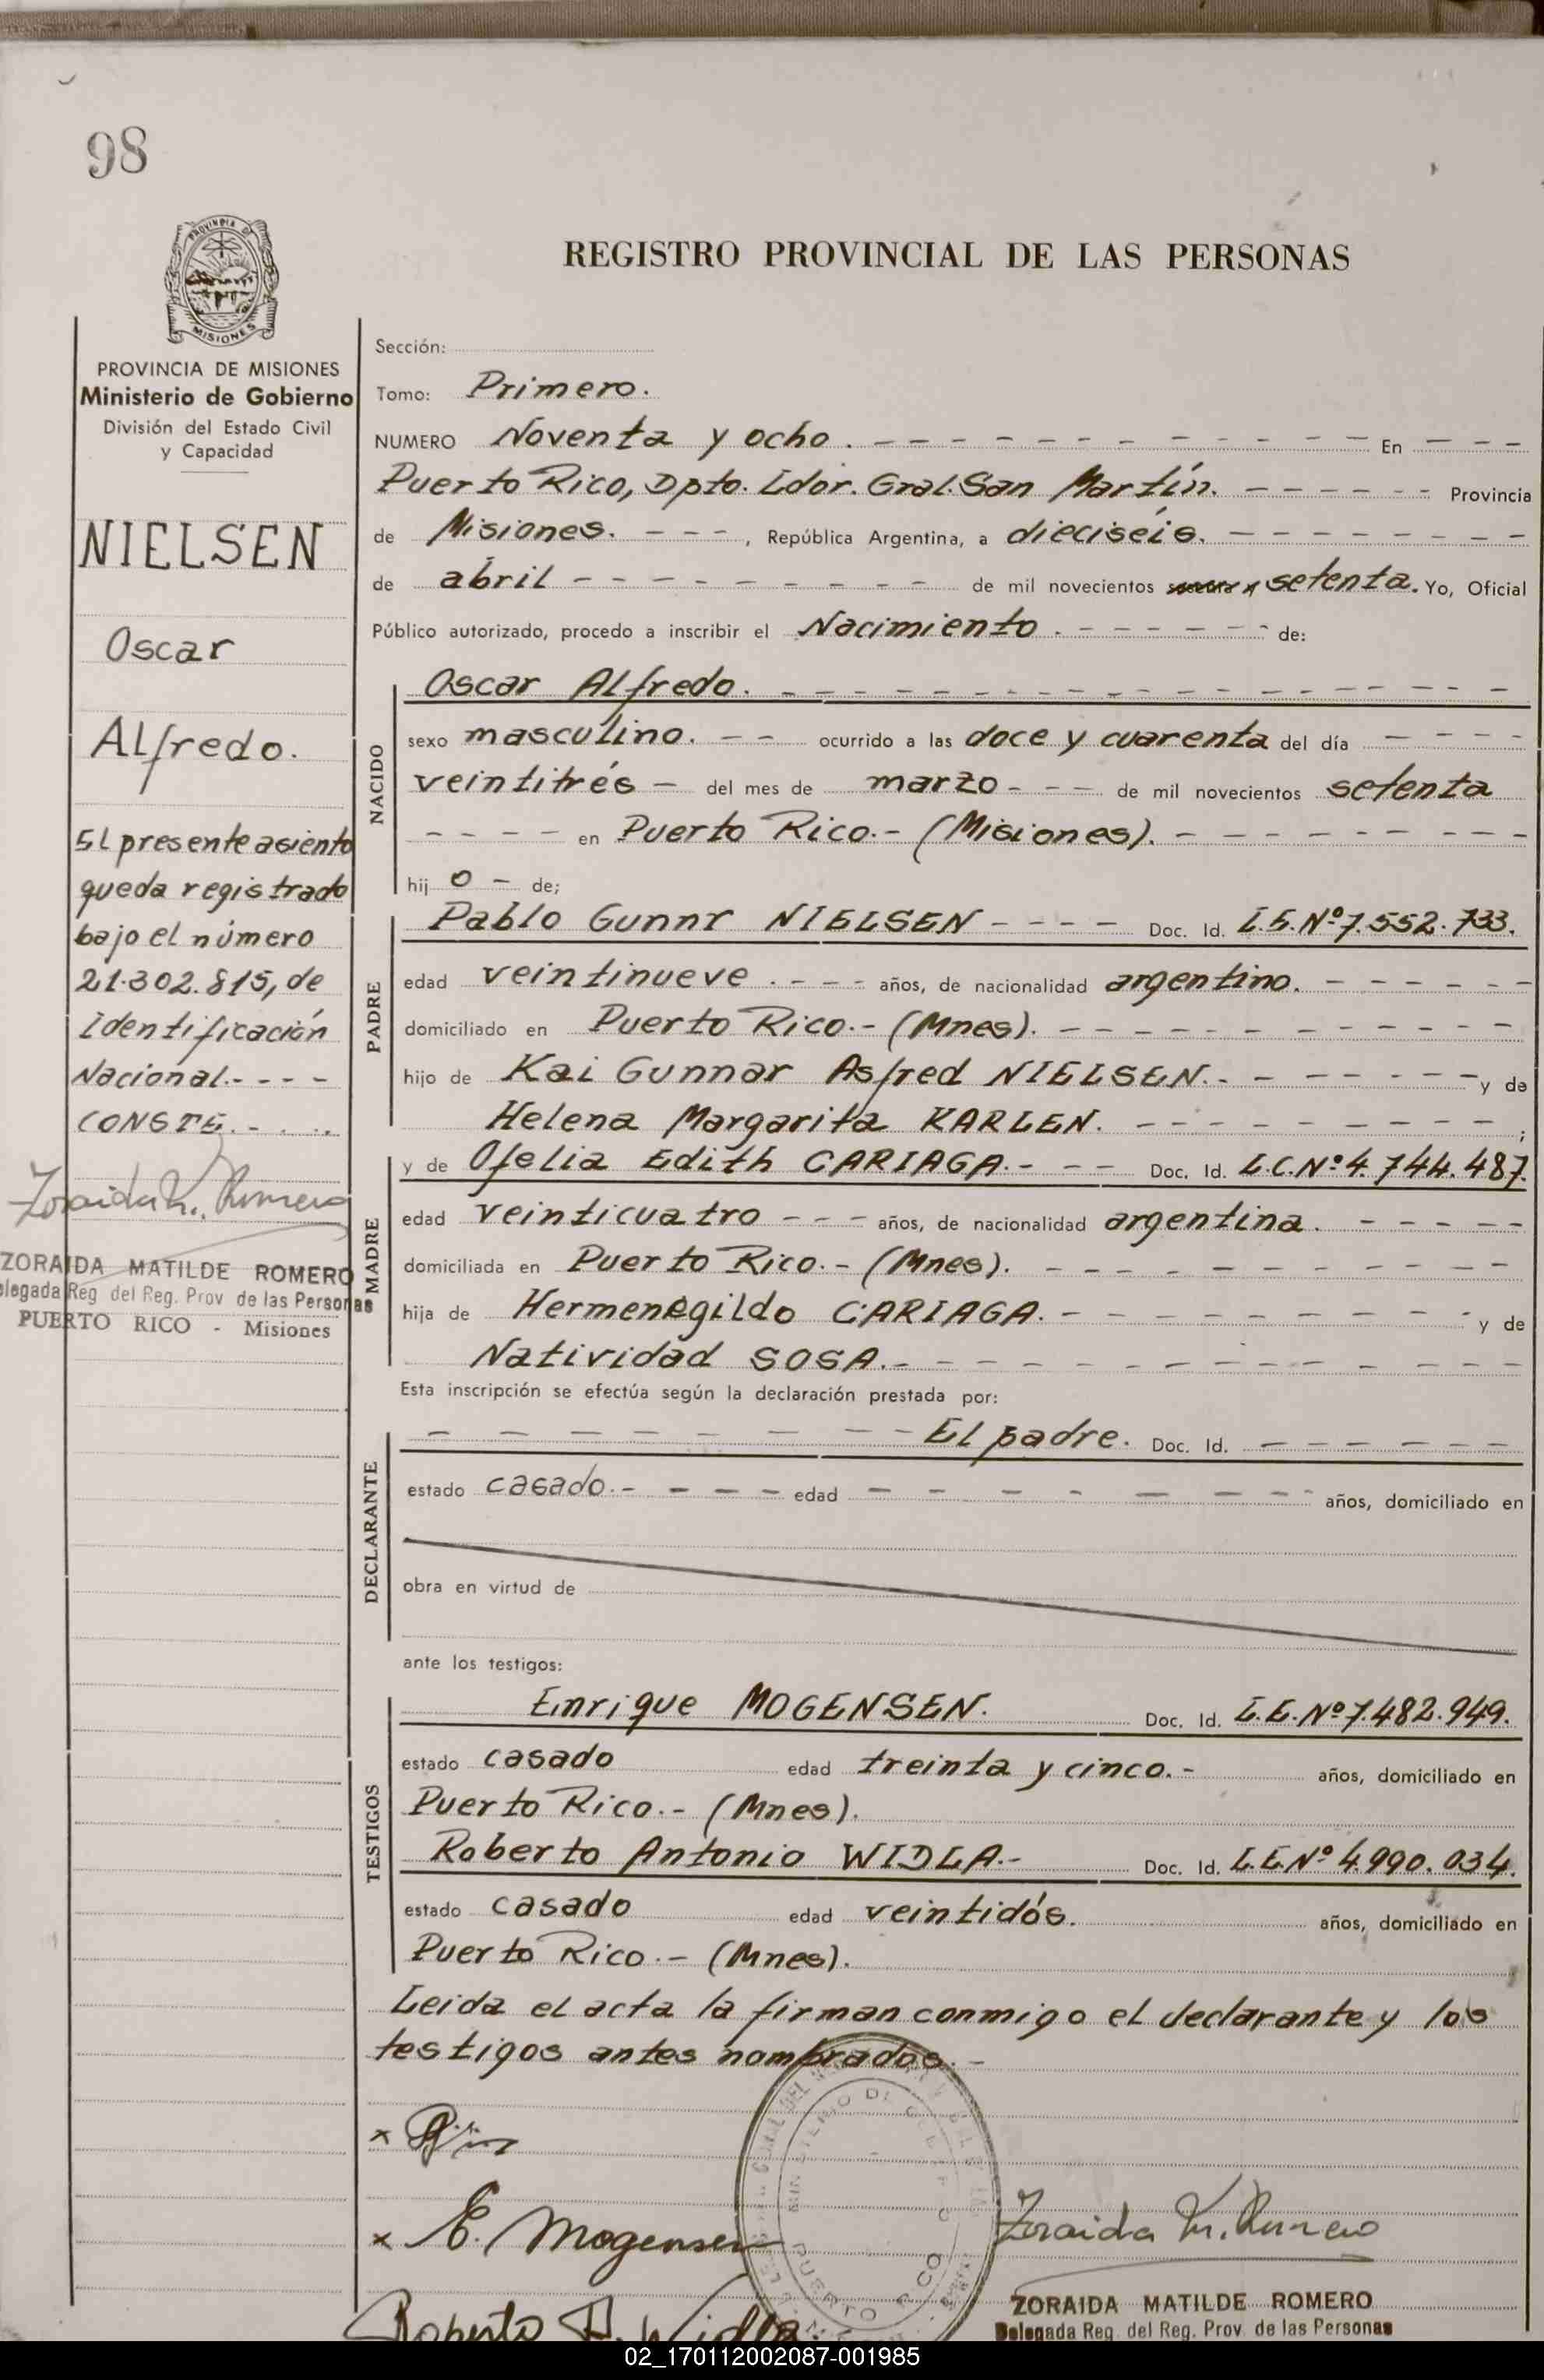 98
PROVINCIA DE
MISIONES
REGISTRO PROVINCIAL DE LAS PERSONAS
PROVINCIA DE MISIONES
Ministerio de Gobierno
División del Estado Civil
y Capacidad
NIELSEN
Oscar
Alfredo.
El presente asiento
queda registrado
bajo el número
21.302.815, de
Identificación
Nacional.- - - -
CONSTE. - . . .
Zoraida M. Romero
ZORAIDA MATILDE ROMERO
Delegada Reg del Reg. Prov de las Personas
PUERTO RICO - Misiones
Sección:
Tomo: Primero.
NUMERO Noventa y ocho. - - - En - - -
Puerto Rico, Dpto. Ldor. Gral. San Martín. - - - Provincia
de Misiones. - - - , República Argentina, a dieciséis. - - -
de abril - - - de mil novecientos setenta. Yo, Oficial
Público autorizado, procedo a inscribir el Nacimiento. - - - de:
NACIDO
Oscar Alfredo. - - -
sexo masculino. - - ocurrido a las doce y cuarenta del día - - - -
veintitrés - del mes de marzo - - - de mil novecientos setenta
- - - - en Puerto Rico.- (Misiones). - - -
hij o - de;
PADRE
Pablo Gunnr NIELSEN - - - - Doc. Id. L.E.Nº7.552.733.
edad veintinueve. - - - años, de nacionalidad argentino. - - -
domiciliado en Puerto Rico.- (Mnes). - - -
hijo de Kai Gunnar Asfred NIELSEN.- - - - y de
Helena Margarita KARLEN. - - - ;
MADRE
y de Ofelia Edith CARIAGA.- - - Doc. Id. L.C.Nº4.744.487.
edad veinticuatro - - - años, de nacionalidad argentina. - - -
domiciliada en Puerto Rico.- (Mnes). - - -
hija de Hermenegildo CARIAGA. - - - y de
Natividad SOSA.- - - -
Esta inscripción se efectúa según la declaración prestada por:
DECLARANTE
- - - El padre. Doc. Id. - - -
estado casado.- - - - - edad - - - años, domiciliado en
obra en virtud de
ante los testigos:
TESTIGOS
Enrique MOGENSEN. Doc. Id. L.E.Nº7.482.949.
estado casado edad treinta y cinco.- años, domiciliado en
Puerto Rico.- (Mnes).
Roberto Antonio WIDLA.- Doc. Id. L.E.Nº4.990.034.
estado casado edad veintidós. años, domiciliado en
Puerto Rico.- (Mnes).
Leida el acta la firman conmigo el declarante y los
testigos antes nombrados.-
x
x E. Mogensen
Zoraida M. Romero
PUERTO RICO
Roberto A. Widla.
ZORAIDA MATILDE ROMERO
Delegada Reg. del Reg. Prov. de las Personas
02_170112002087-001985